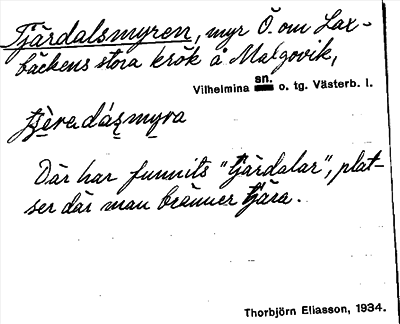 Tjärdalsmyren, myr Ö. om Lax-
bäckens stora krök å Malgovik,
Vilhelmina sn. o. tg. Västerb. l.
tjèradásmyra
Där har funnits "tjärdalar", plat-
ser där man bränner tjära.
Thorbjörn Eliasson, 1934.